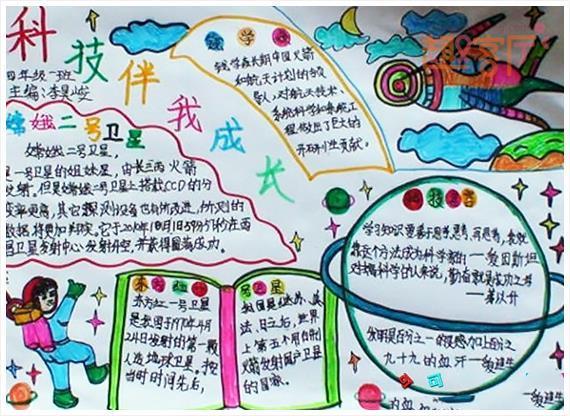 科技伴我成长
四年级一班
主编:李
钱学森
钱学森长期中国火箭
和航天计划的领
导人,对航天技术、
系统科学和系统工
程做出了巨大的
开研性贡献。
嫦娥二号卫星
嫦娥二号卫星,
是一号卫星的姐妹星,由长三丙火箭
发射。但是嫦娥二号卫星上搭载CCD的分
辨率更高,其它探测设备也有所改进,
数据将更加
卫星发射中心发射升空,并获得圆满成功。
东方红一号卫星
东方红一号卫星
是我国于1970年4月
24日发射的第一颗
人造地球卫星。按
当时时间先后,
我国是继苏、美、
法、日之后,世界
上第五个用自制
火箭发射国产卫星
的国家。
学习知识要善于思考,思考,再思考,我就
靠这个方法成为科学家的——爱因斯坦
对搞科学的人来说,勤奋就是成功之母
——茅以升
发明是百分之一的灵感加上百分之
九十九的血汗——爱迪生